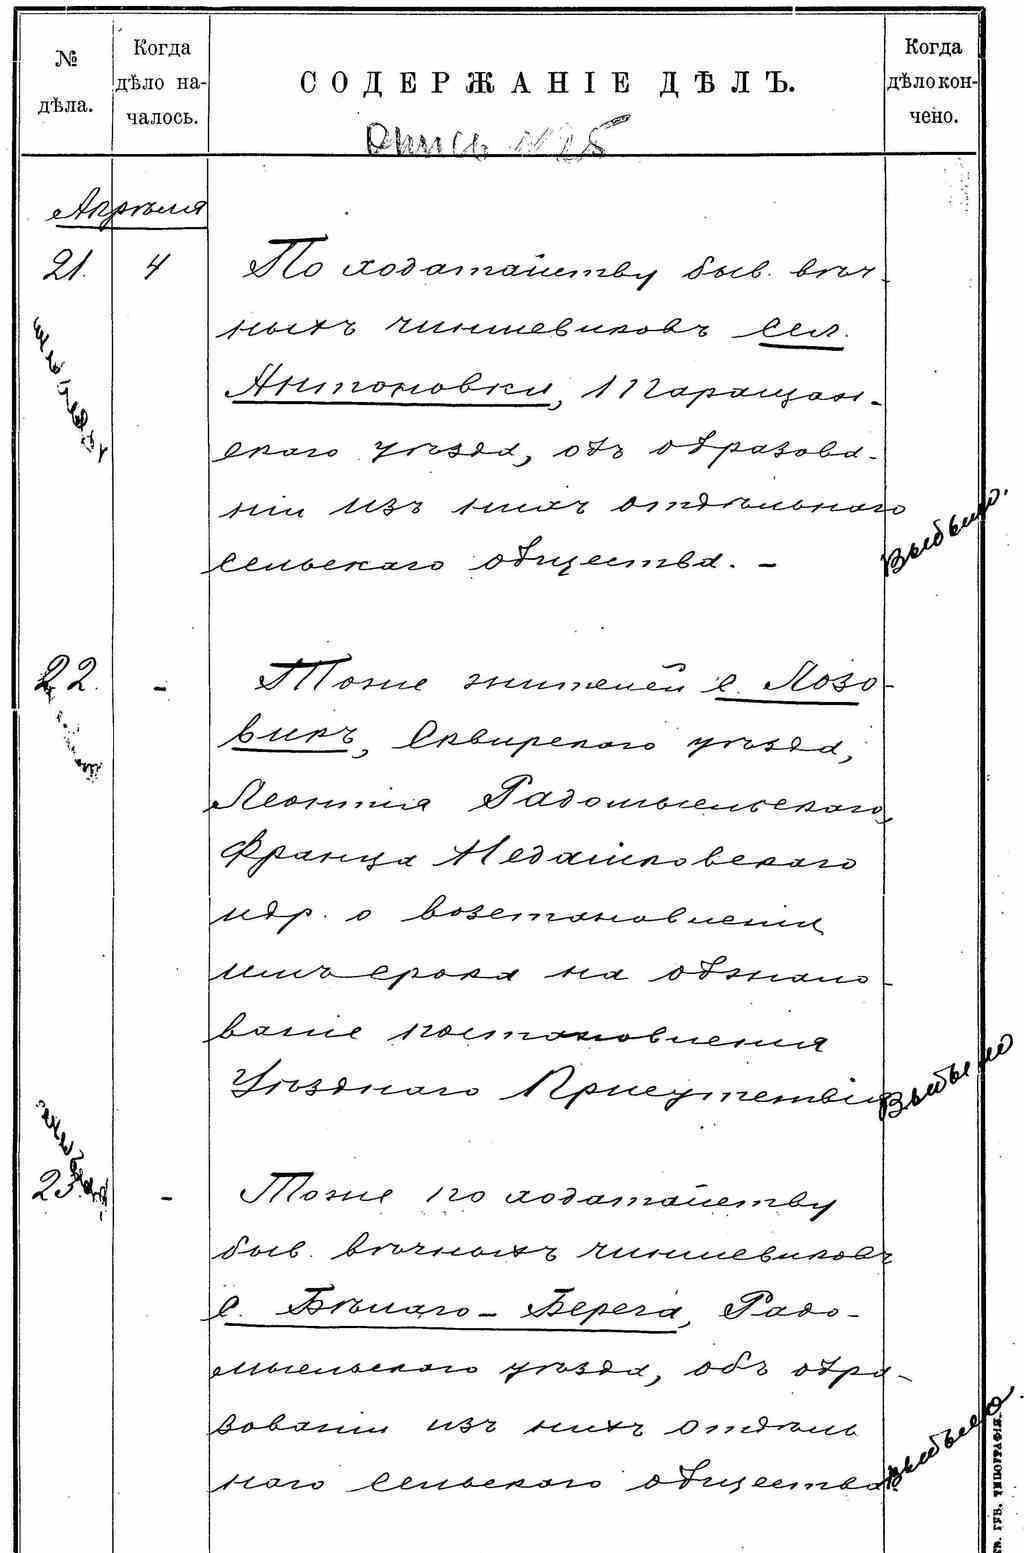 № дѣла.
Когда дѣло началось.
СОДЕРЖАНІЕ ДѢЛЪ.
Когда дѣло кончено.
Опись №25
Апрѣля
21. 4 По ходатайству быв. вѣч-
ныхъ чиншевиковъ сел.
Антоновки, Таращан-
скаго уѣзда, объ образова-
ніи изъ нихъ отдѣльнаго
сельскаго общества. -
Выбыло.
22. - Тоже жителей с. Лозо-
викъ, Сквирскаго уѣзда,
Леонтія Радомысльскаго,
Франца Недашковскаго
и др. о возстановленіи
имъ срока на обжало-
ваніе постановленія
Уѣзднаго Присутствія
Выбыло
23. - Тоже по ходатайству
быв. вѣчныхъ чиншевиковъ
с. Бѣлаго-Берега, Радо-
мысльскаго уѣзда, объ обра-
зованіи изъ нихъ отдѣль
наго сельскаго общества.
Выбыло
ГУБ. ТИПОГРАФІЯ.